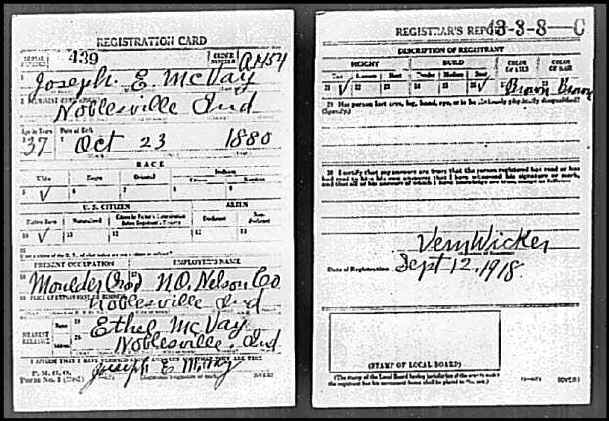 REGISTRATION CARD
SERIAL NUMBER 439 ORDER NUMBER A1154
Joseph E. McVay
PERMANENT HOME ADDRESS
Noblesville Ind
Age in Years Date of Birth
37 Oct 23 1880
RACE
White Negro Oriental Indian
U. S. CITIZEN ALIEN
Native Born Naturalized Declarant
PRESENT OCCUPATION EMPLOYER'S NAME
Moulder N.O. Nelson Co
Noblesville Ind
NEAREST RELATIVE Name Ethel McVay
Address Noblesville Ind
I AFFIRM THAT I HAVE VERIFIED ABOVE ANSWERS AND THAT THEY ARE TRUE
P. M. G. O.
Form No. 1 (Red) Joseph E McVay
REGISTRAR'S REPORT 13-3-8-C
DESCRIPTION OF REGISTRANT
HEIGHT BUILD COLOR OF EYES COLOR OF HAIR
Tall Medium Short Slender Medium Stout
21 22 23 24 25 26 27 Brown 28 Brown
29 Has person lost arm, leg, hand, eye, or is he obviously physically disqualified?
(Specify.)
30 I certify that my answers are true; that the person registered has read or has
had read to him his own answers; that I have witnessed his signature or mark,
and that all of his answers of which I have knowledge are true, except as follows:
Wicker
Date of Registration Sept 12, 1918
(STAMP OF LOCAL BOARD)
(The stamp of the Local Board having jurisdiction of the area in which
the registrant has his permanent home shall be placed in this box.)